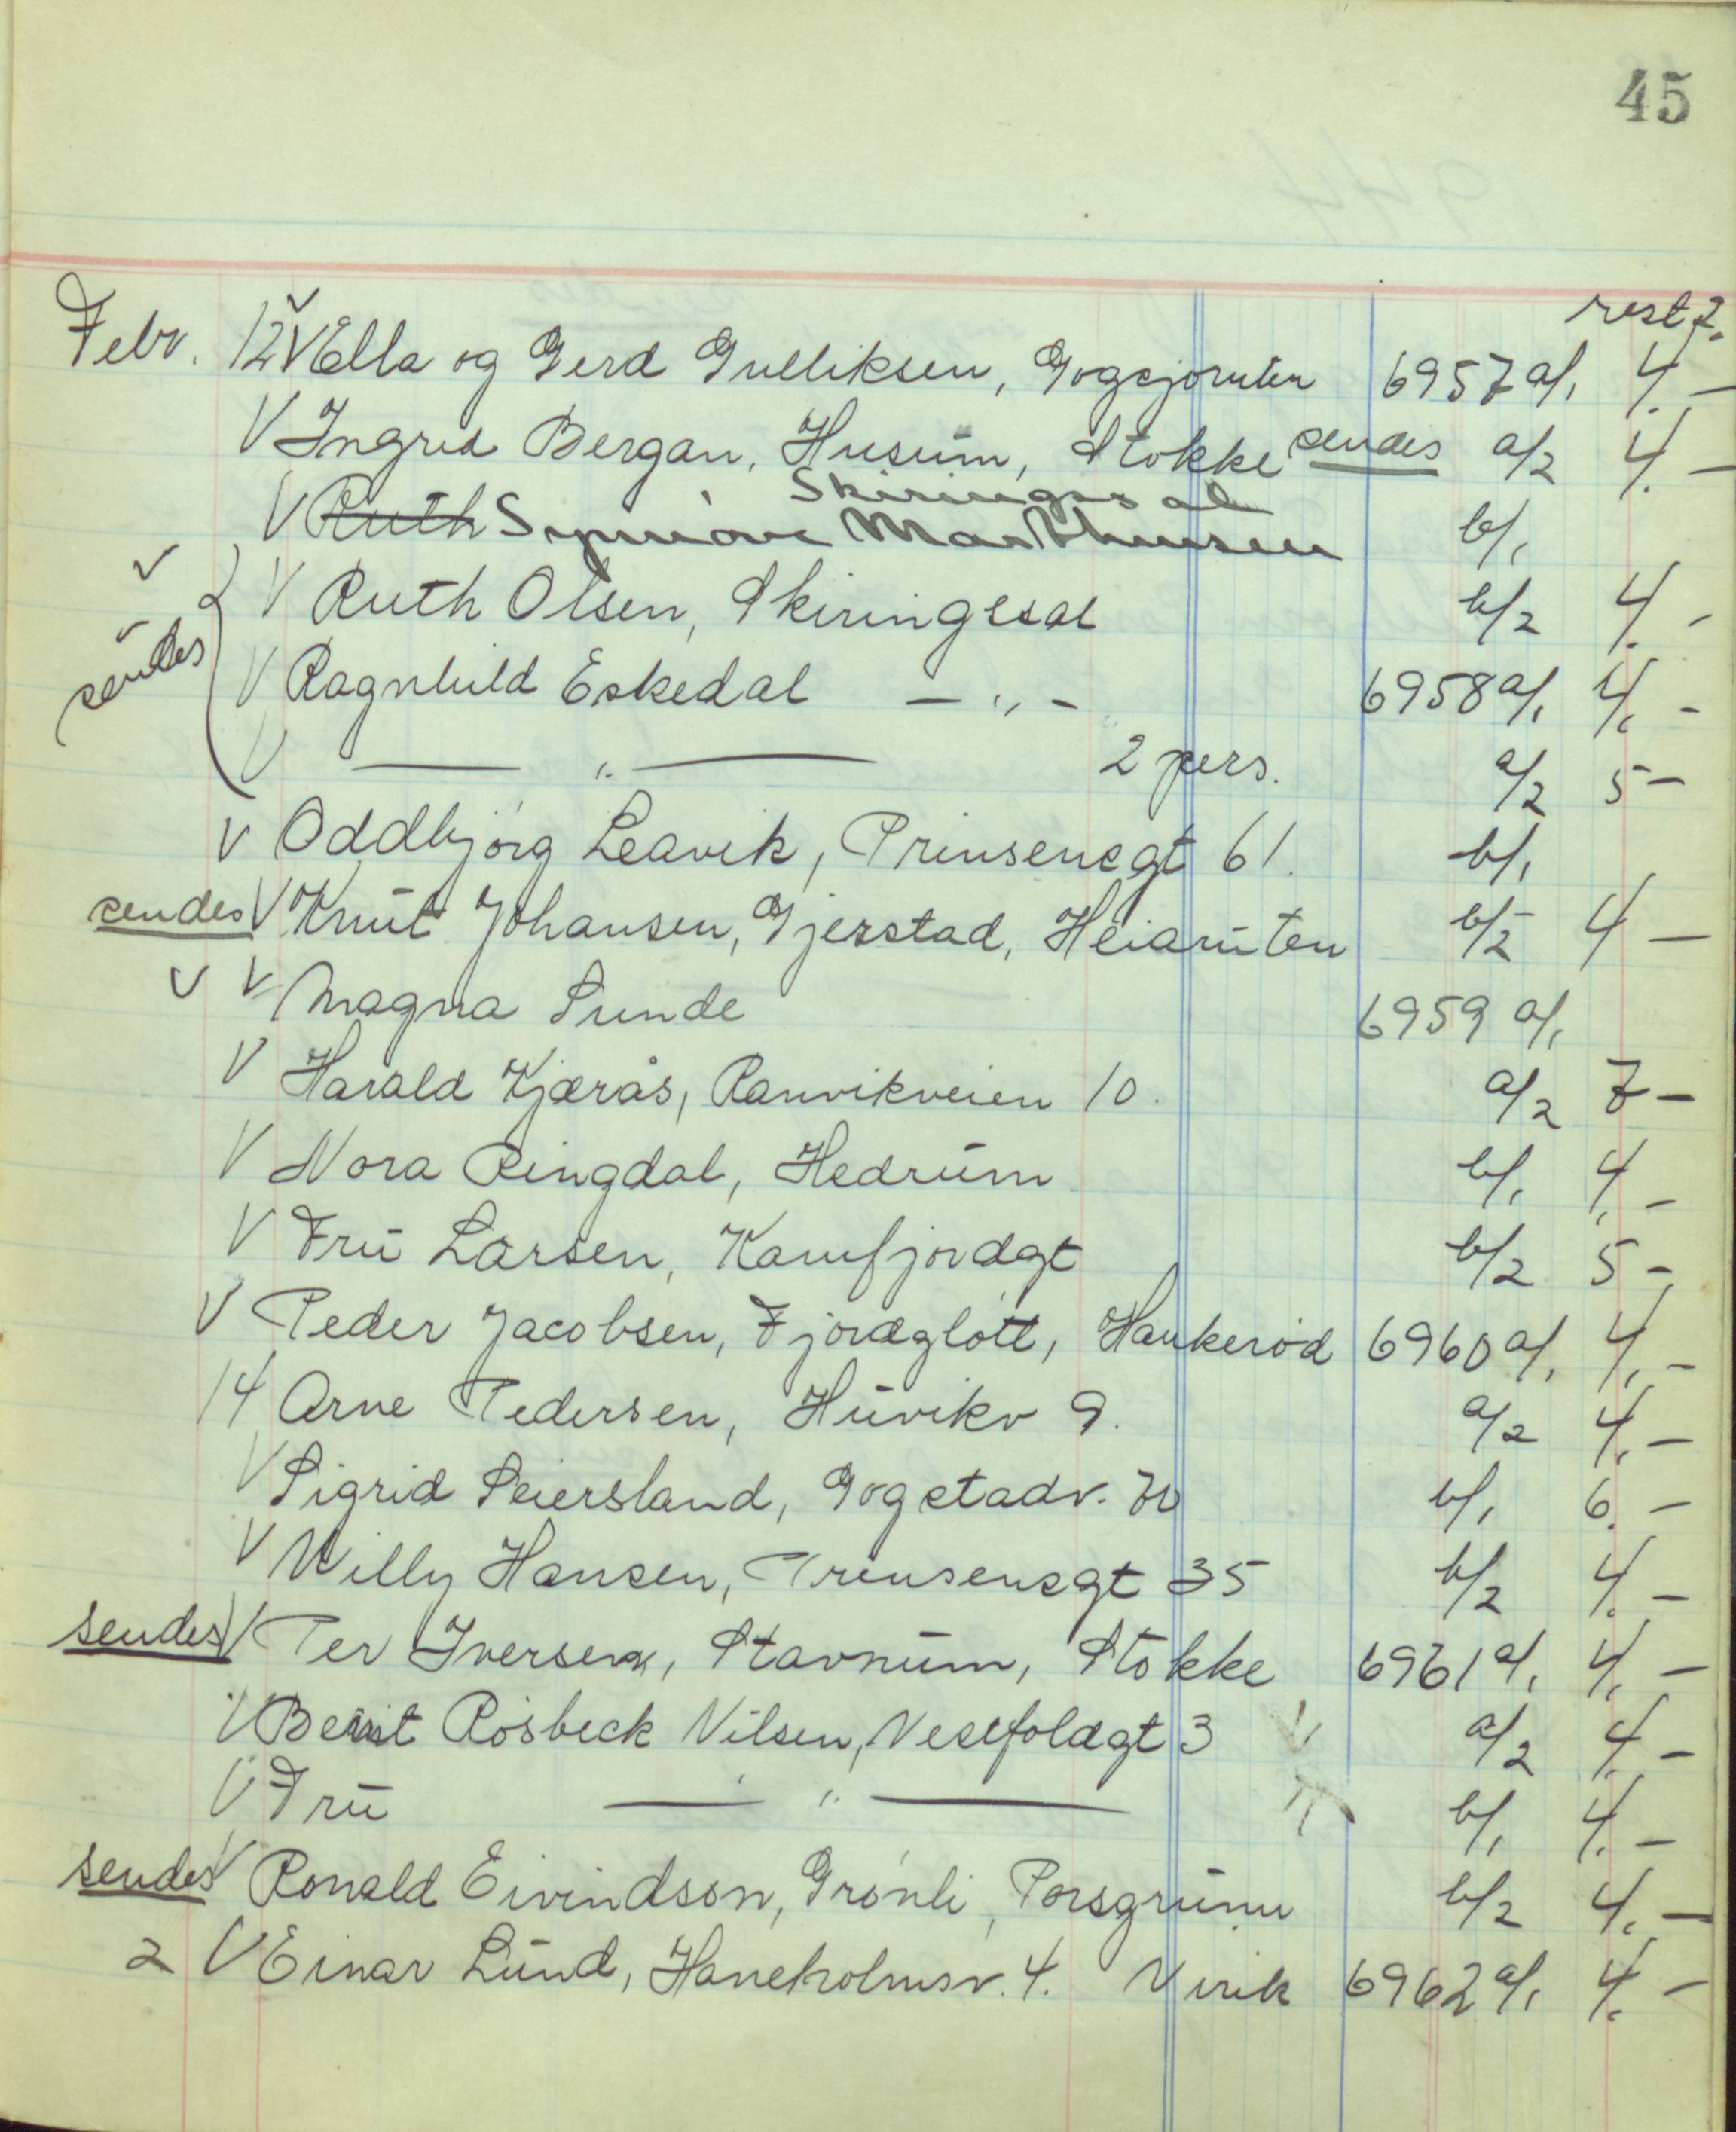 45
rest 7.
Febr. 12 V Ella og Gerd Gulliksen, Gogsjøruten 6957 a/1 4.-
V Ingrid Bergan, Husum, Stokke sendes a/2 4.-
Skiringssal
V Ruth Synnøve Marthinsen b/1
V Ruth Olsen, Skiringssal b/2 4.-
sendes V Ragnhild Eskedal - " - 6958 a/1 4.-
V — " — 2 pers. a/2 5-
V Oddbjørg Leavik, Prinsensgt 61. b/1
sendes V Knut Johansen, Gjerstad, Heiaruten b/2 4-
V V Magna Sunde 6959 a/1
V Harald Kjærås, Ranvikveien 10. a/2 7-
V Nora Ringdal, Hedrum b/1 4.-
V Fru Larsen, Kamfjordgt b/2 5-
V Peder Jacobsen, Fjordgløtt, Haukerød 6960 a/1 4.-
14 Arne Pedersen, Huvikv 9. a/2 4.-
V Sigrid Seiersland, Gogstadv. 70 b/1 6.-
V Willy Hansen, Prinsensgt 35 b/2 4.-
sendes V Per Iversen, Stavnum, Stokke 6961 a/1 4.-
V Berit Røsbeck Nilsen, Vestfoldgt 3 a/2 4.-
V Fru — " — b/1 4.-
sendes V Ronald Eivindson, Grønli, Porsgrunn b/2 4.-
2 V Einar Lund, Haneholmsv. 4. Virik 6962 a/1 4.-